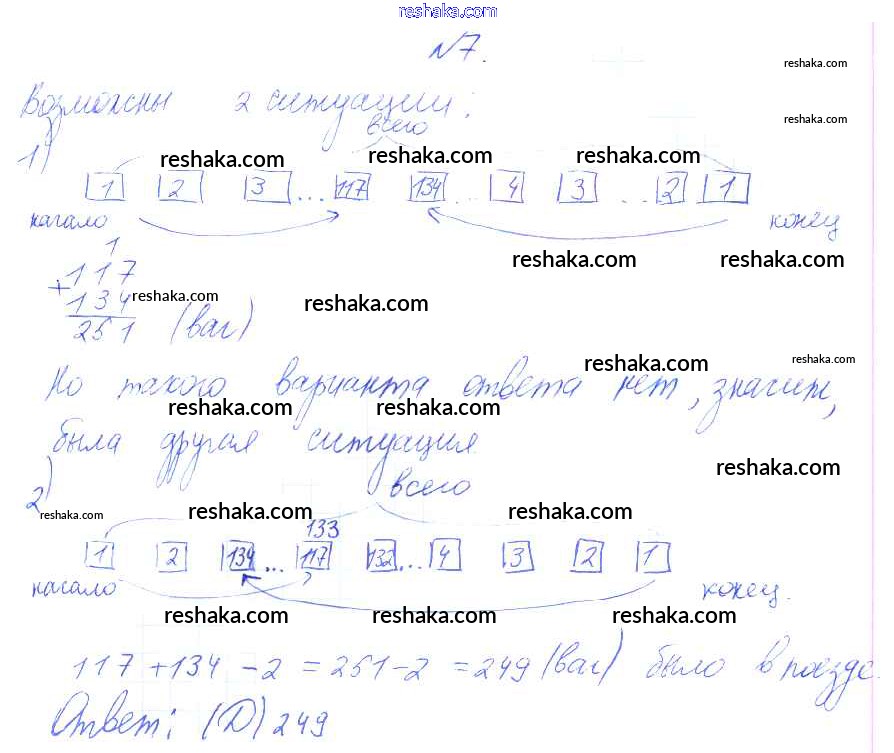 reshaka.com
№7.
reshaka.com
Возможны 2 ситуации:
reshaka.com
всего
1)
reshaka.com reshaka.com reshaka.com
1 2 3 ... 117 134 ... 4 3 ... 2 1
начало конец
reshaka.com reshaka.com
1
+117
134 reshaka.com reshaka.com
251 (ваг)
reshaka.com reshaka.com
Но такого варианта ответа нет, значит,
reshaka.com reshaka.com
была другая ситуация
reshaka.com
2) всего
reshaka.com reshaka.com reshaka.com
133
1 2 134 ... 117 132 ... 4 3 2 1
начало конец.
reshaka.com reshaka.com reshaka.com
117 + 134 - 2 = 251 - 2 = 249 (ваг) было в поезде.
Ответ: (D) 249